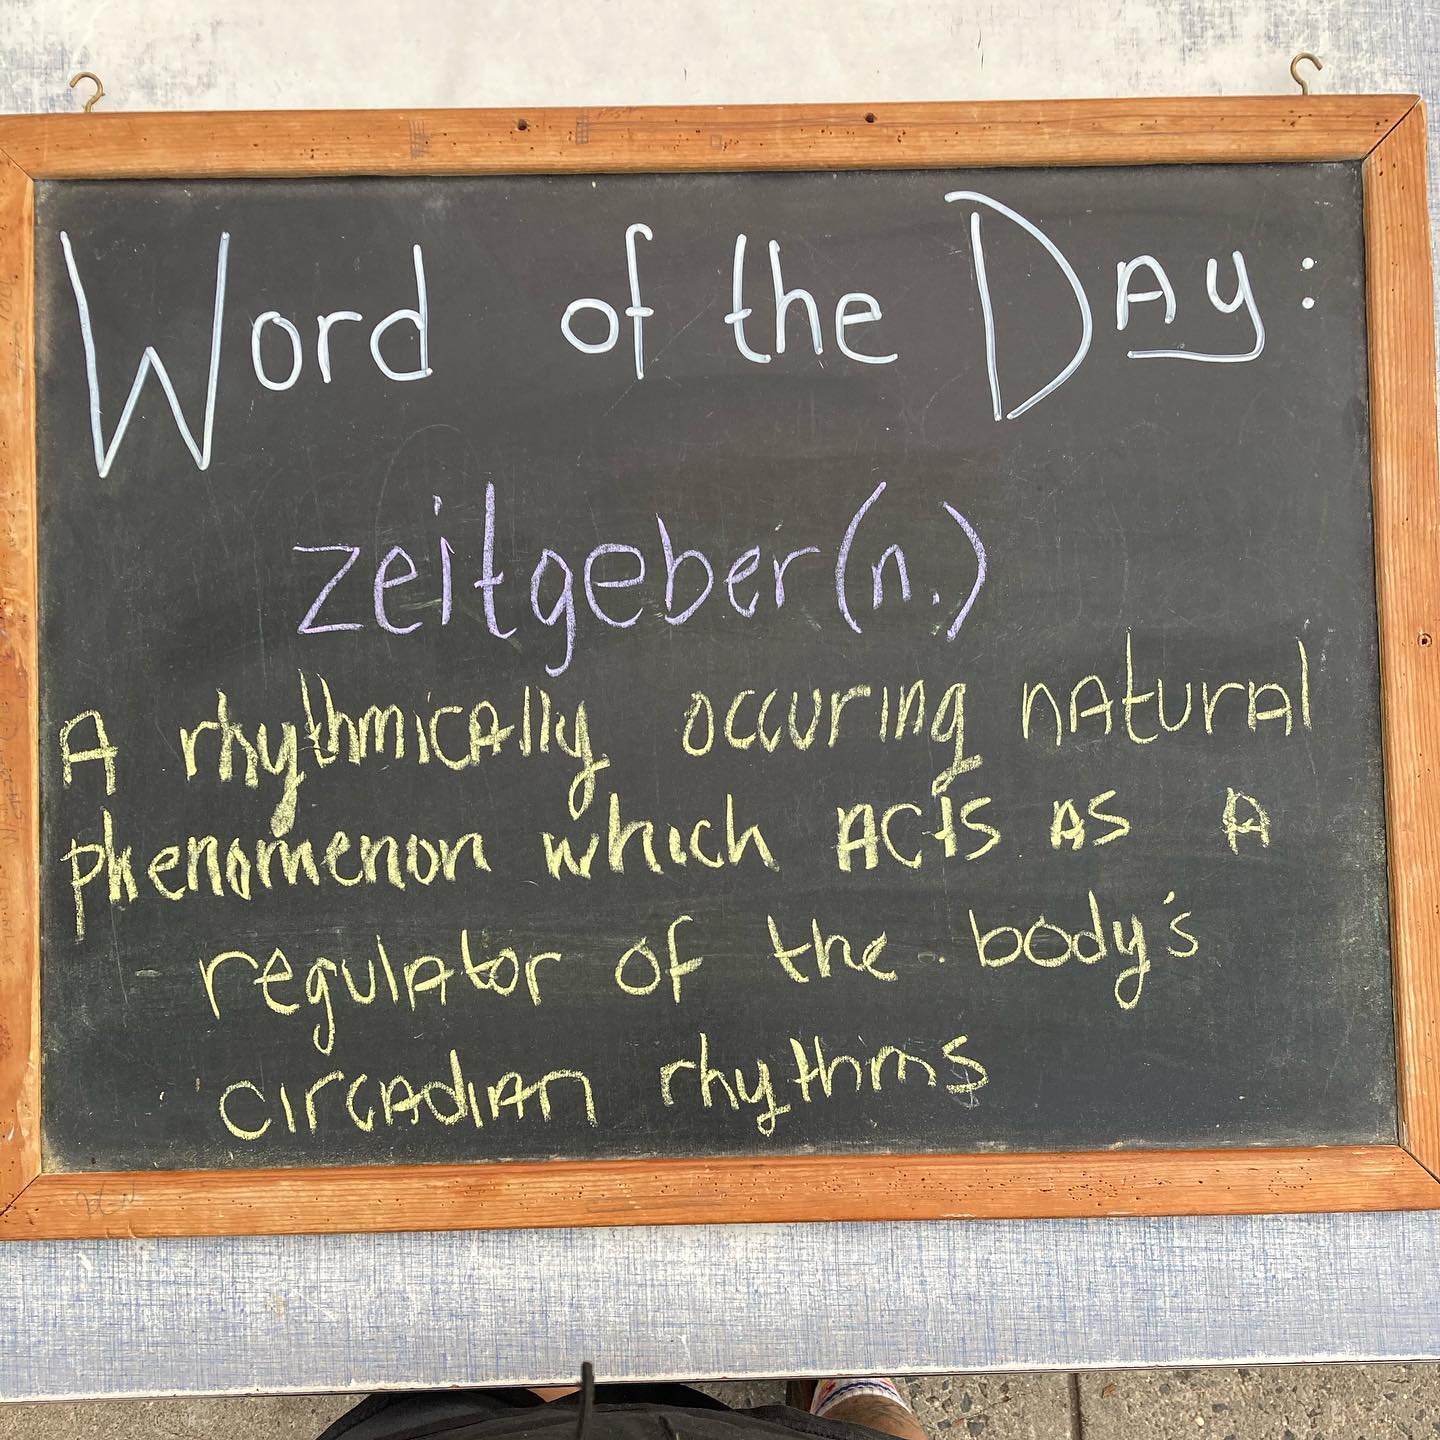 Word of the Day:
zeitgeber (n.)
A rhythmically occuring natural
phenomenon which acts as a
regulator of the body's
circadian rhythms